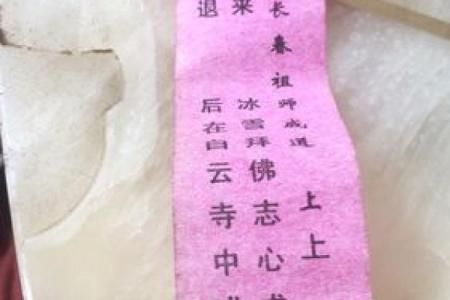 长春祖师成道 上上
来 冰雪拜佛志心
退 后在白云寺中